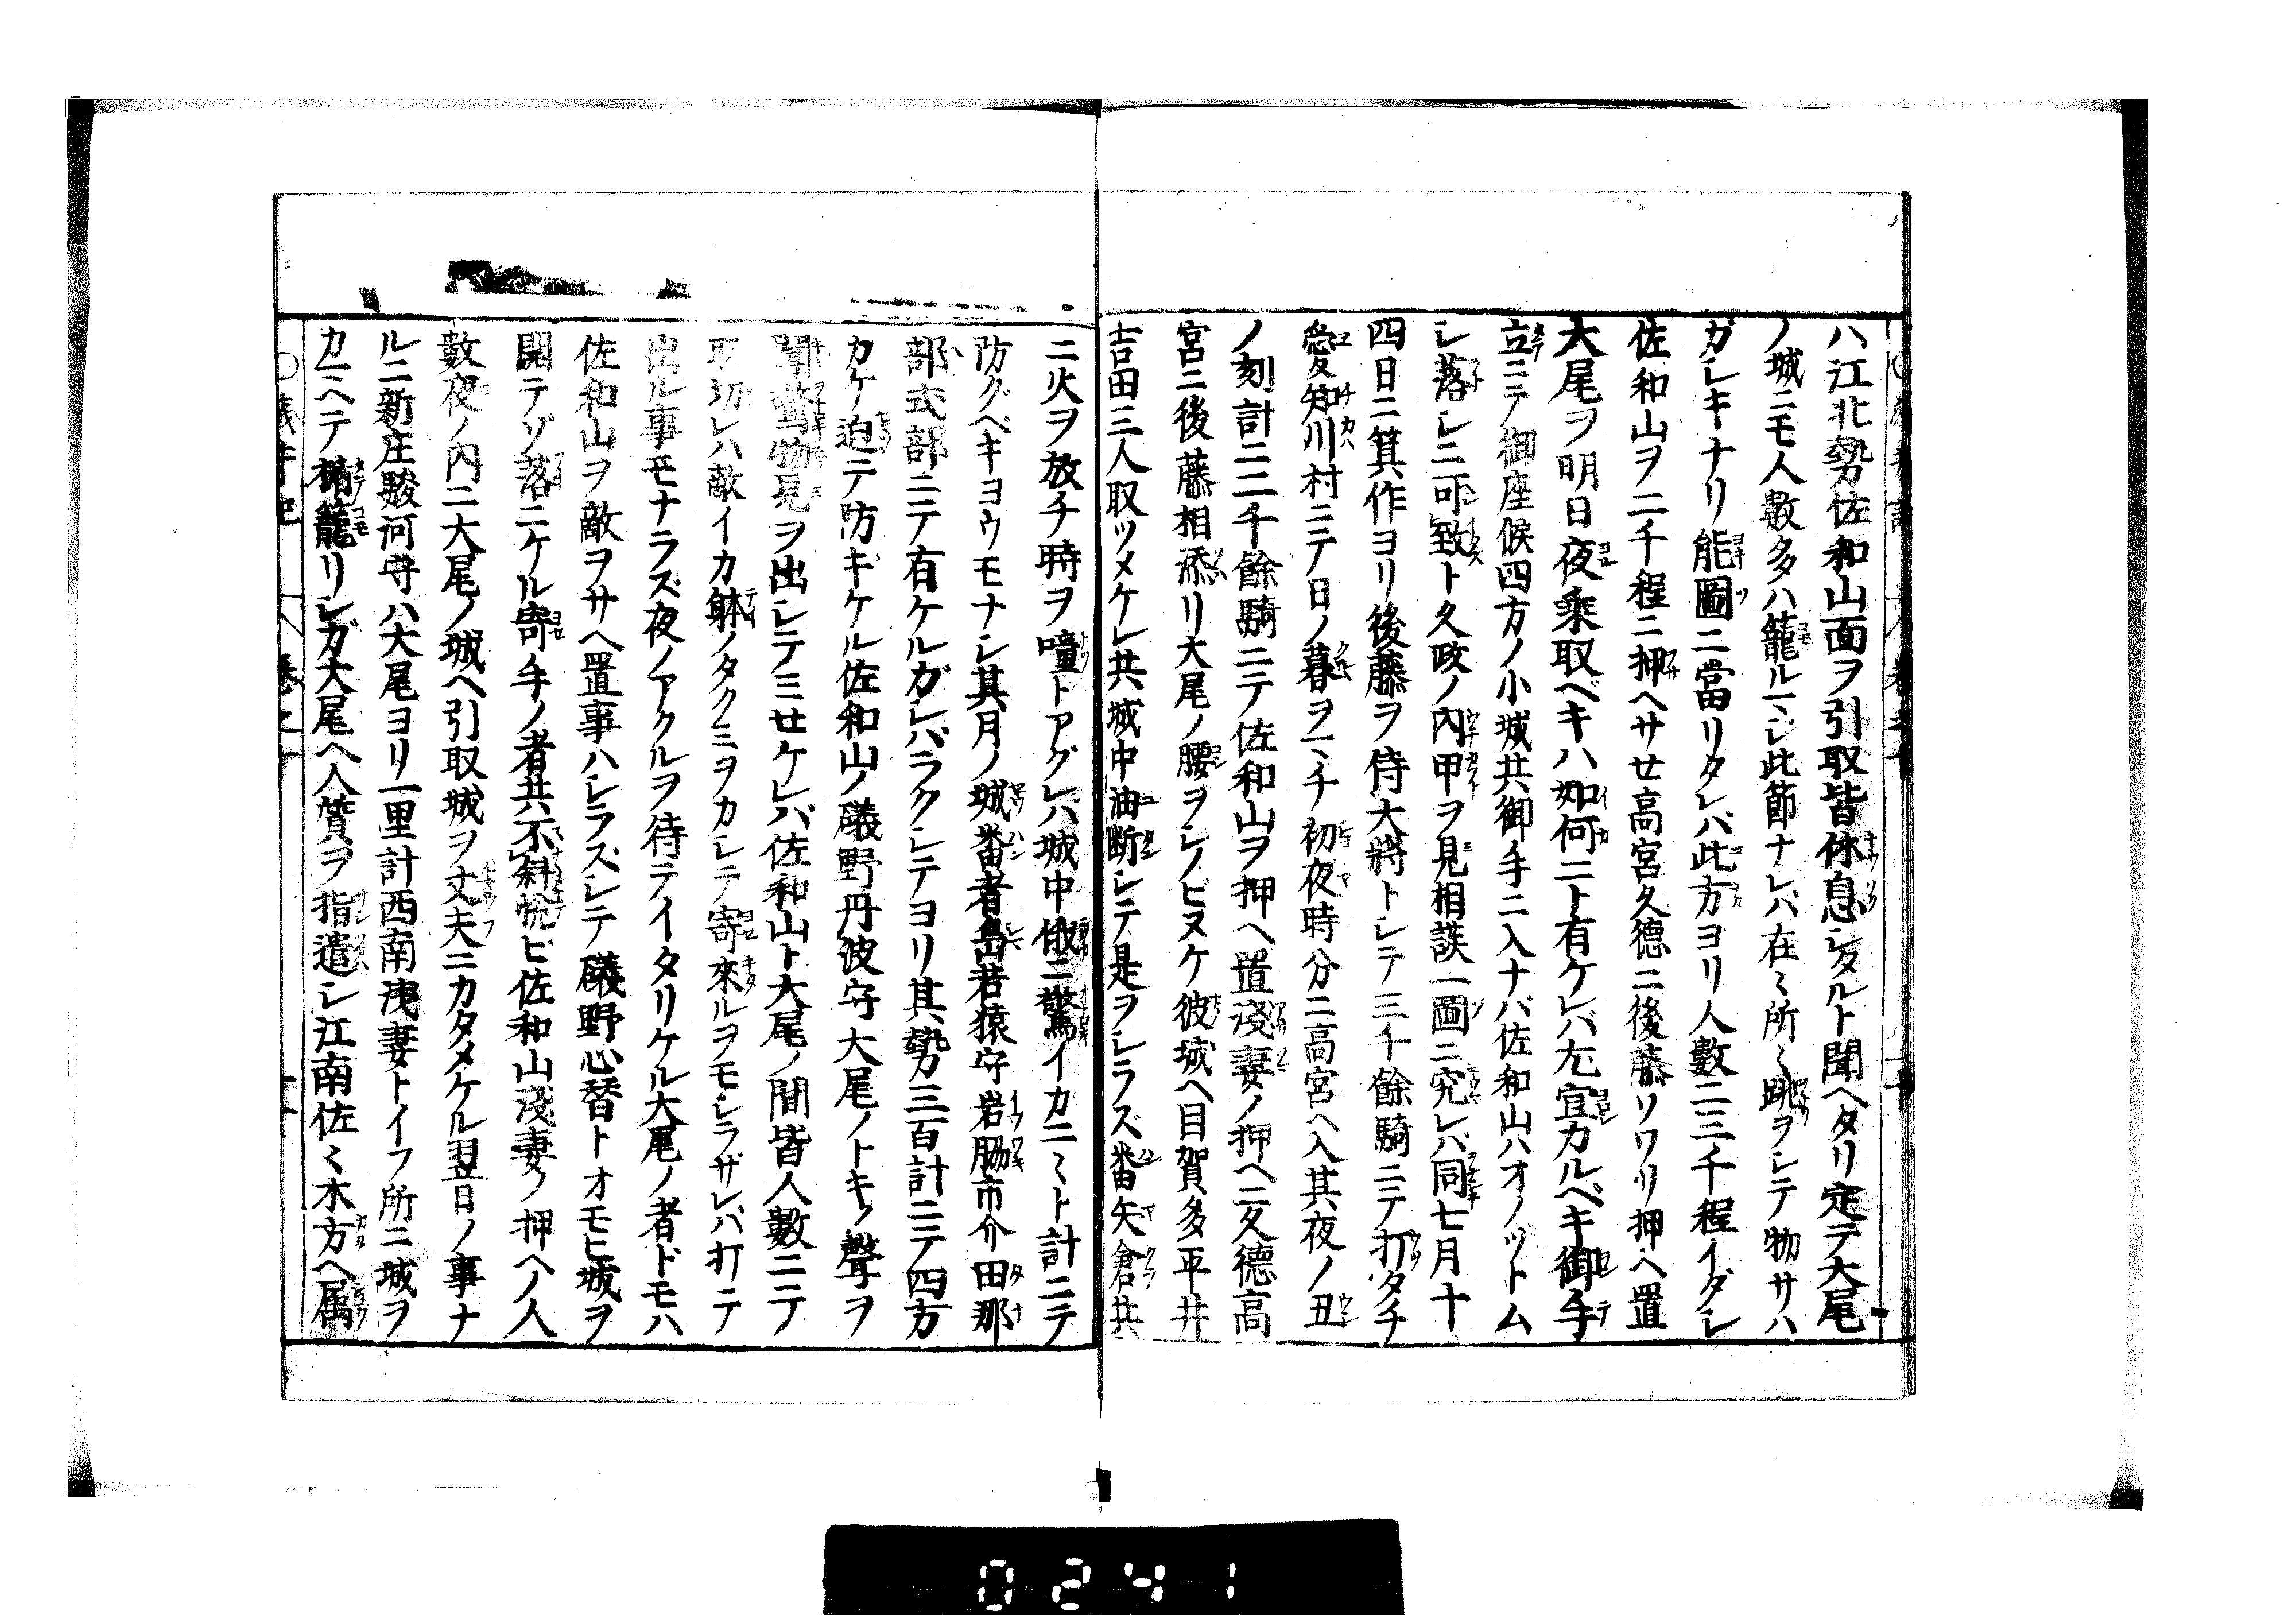 ハ江北勢佐和山面ヲ引取皆休息シタルト聞ヘタリ定テ大尾
ノ城ニモ人數多ハ籠ルマシ此節ナレバ在々所々跳ヲシテ物サハ
ガシキナリ能圖ニ當リタレバ此方ヨリ人數二三千程イダシ
佐和山ヲ二千程ニ押ヘサセ高宮久德ニ後藤ソワリ押ヘ置
大尾ヲ明日夜乘取ベキハ如何ニト有ケレバ尤宜カルベキ御手
立ニテ御座候四方ノ小城共御手ニ入ナバ佐和山ハオノツトム
シ落シニ可致ト久政ノ內甲ヲ見相談一圖ニ究レバ同七月十
四日ニ箕作ヨリ後藤ヲ侍大將トシテ三千餘騎ニテ打タチ
愛知川村ニテ日ノ暮ヲマチ初夜時分ニ高宮ヘ入其夜ノ丑
ノ刻計ニ二千餘騎ニテ佐和山ヲ押ヘ置淺妻ノ押ヘニ久德高
宮ニ後藤相添リ大尾ノ腰ヲシノビヌケ彼城ヘ目賀多平井
吉田三人取ツメケレ共城中油断シテ是ヲシラズ番矢倉共
ニ火ヲ放チ時ヲ噇トアグレハ城中俄ニ驚イカニ々ト計ニテ
防グベキヨウモナシ其月ノ城番者嶋若狹守岩脇市介田那
部式部ニテ有ケルガシバラクシテヨリ其勢三百計ニテ四方
カケ迫テ防ギケル佐和山ノ礒野丹波守大尾ノトキノ聲ヲ
聞驚物見ヲ出シテミセケレバ佐和山ト大尾ノ間皆人數ニテ
取切レハ敵イカ躰ノタクミヲカシテ寄來ルヲモシラザレバ打テ
出ル事モナラズ夜ノアクルヲ待テイタリケル大尾ノ者ドモハ
佐和山ヲ敵ヲサヘ置事ハシラズシテ礒野心替トオモヒ城ヲ
開テゾ落ニケル寄手ノ者共不斜悅ビ佐和山淺妻ノ押ヘノ人
數夜ノ內ニ大尾ノ城ヘ引取城ヲ丈夫ニカタメケル翌日ノ事ナ
ルニ新庄駿河守ハ大尾ヨリ一里計西南淺妻トイフ所ニ城ヲ
カマヘテ楯籠リシガ大尾ヘ人質ヲ指遣シ江南佐々木方ヘ属
0241